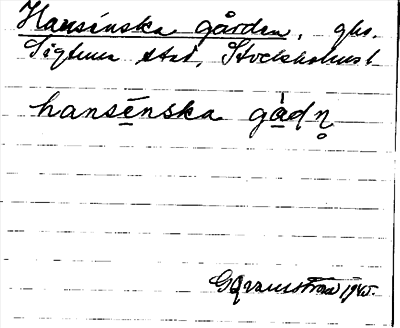 Hansénska gården, gbr.
Sigtuna stad, Stockholms l
hansénska gådn̥
G Qvarnström 1945.